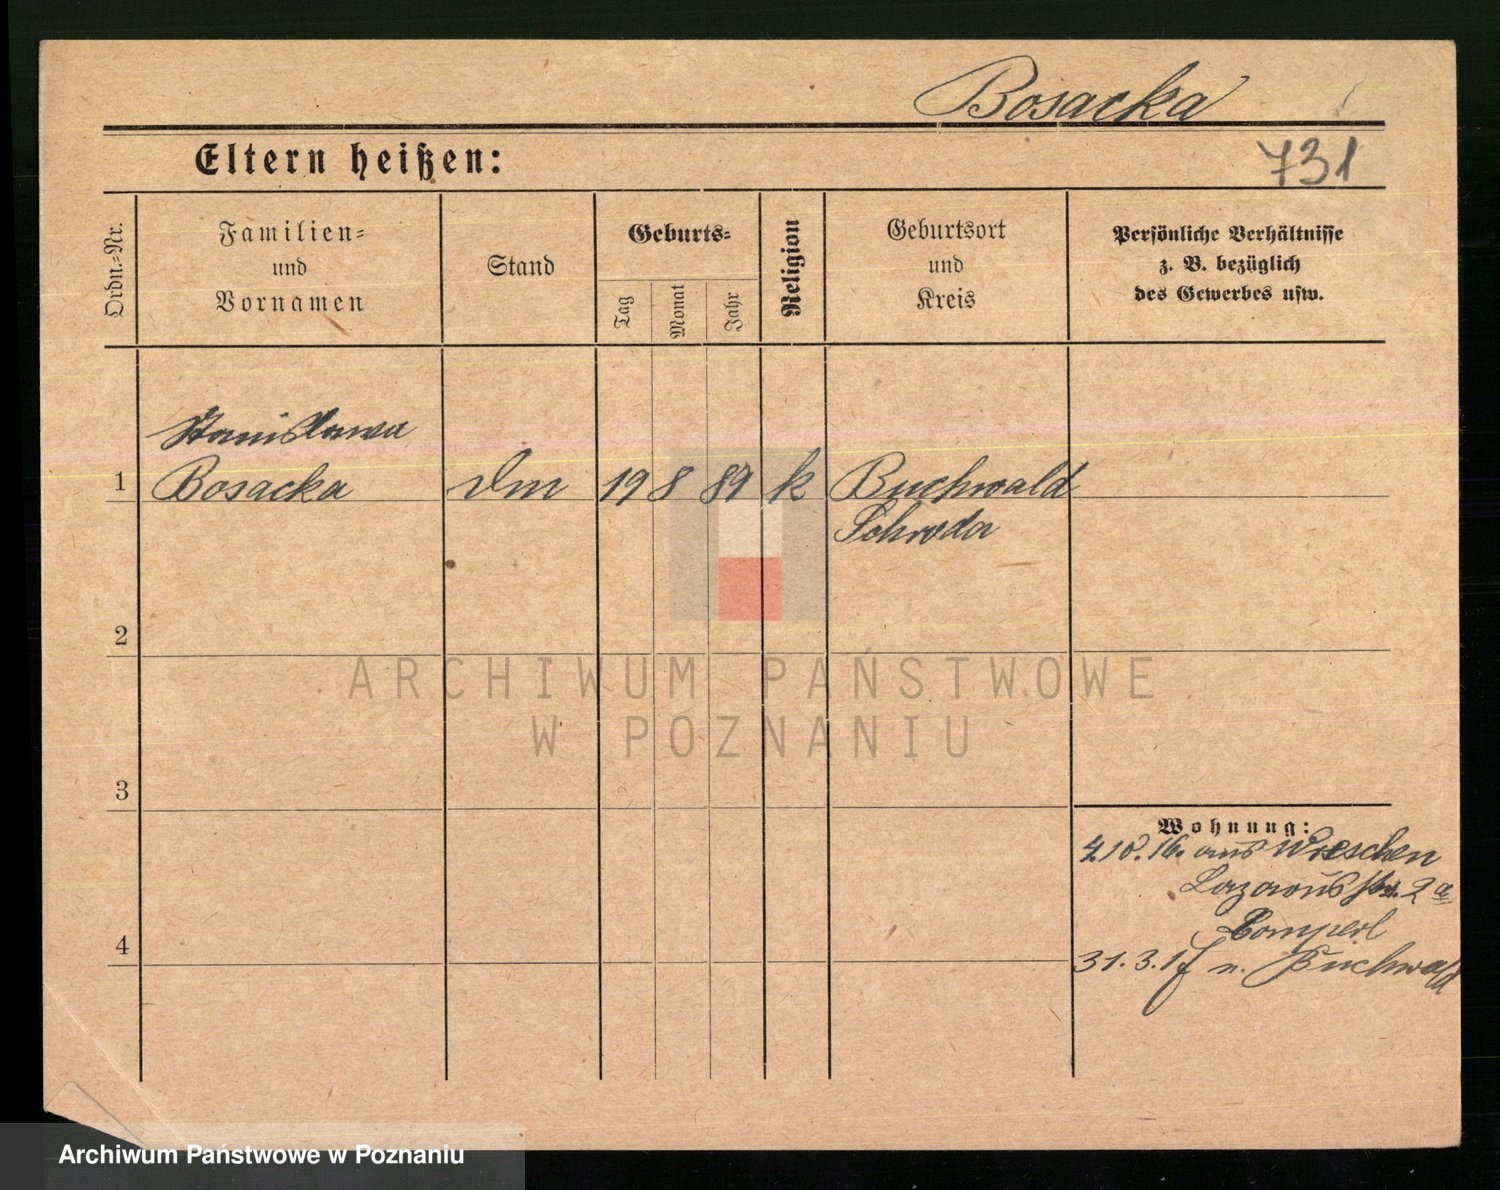 Bosacka
Eltern heißen:
731
Ordn.-Nr.
Familien-
und
Vornamen
Stand
Geburts-
Tag
Monat
Jahr
Religion
Geburtsort
und
Kreis
Persönliche Verhältnisse
z. B. bezüglich
des Gewerbes usw.
Stanisława
1 Bosacka Dm 19 8 89 k Buchwald
Schroda
2
ARCHIWUM PAŃSTWOWE
W POZNANIU
3
Wohnung:
4.10.16. aus Wreschen
Lazarus str. 2a
4
31.3.17 n. Buchwald
Archiwum Państwowe w Poznaniu